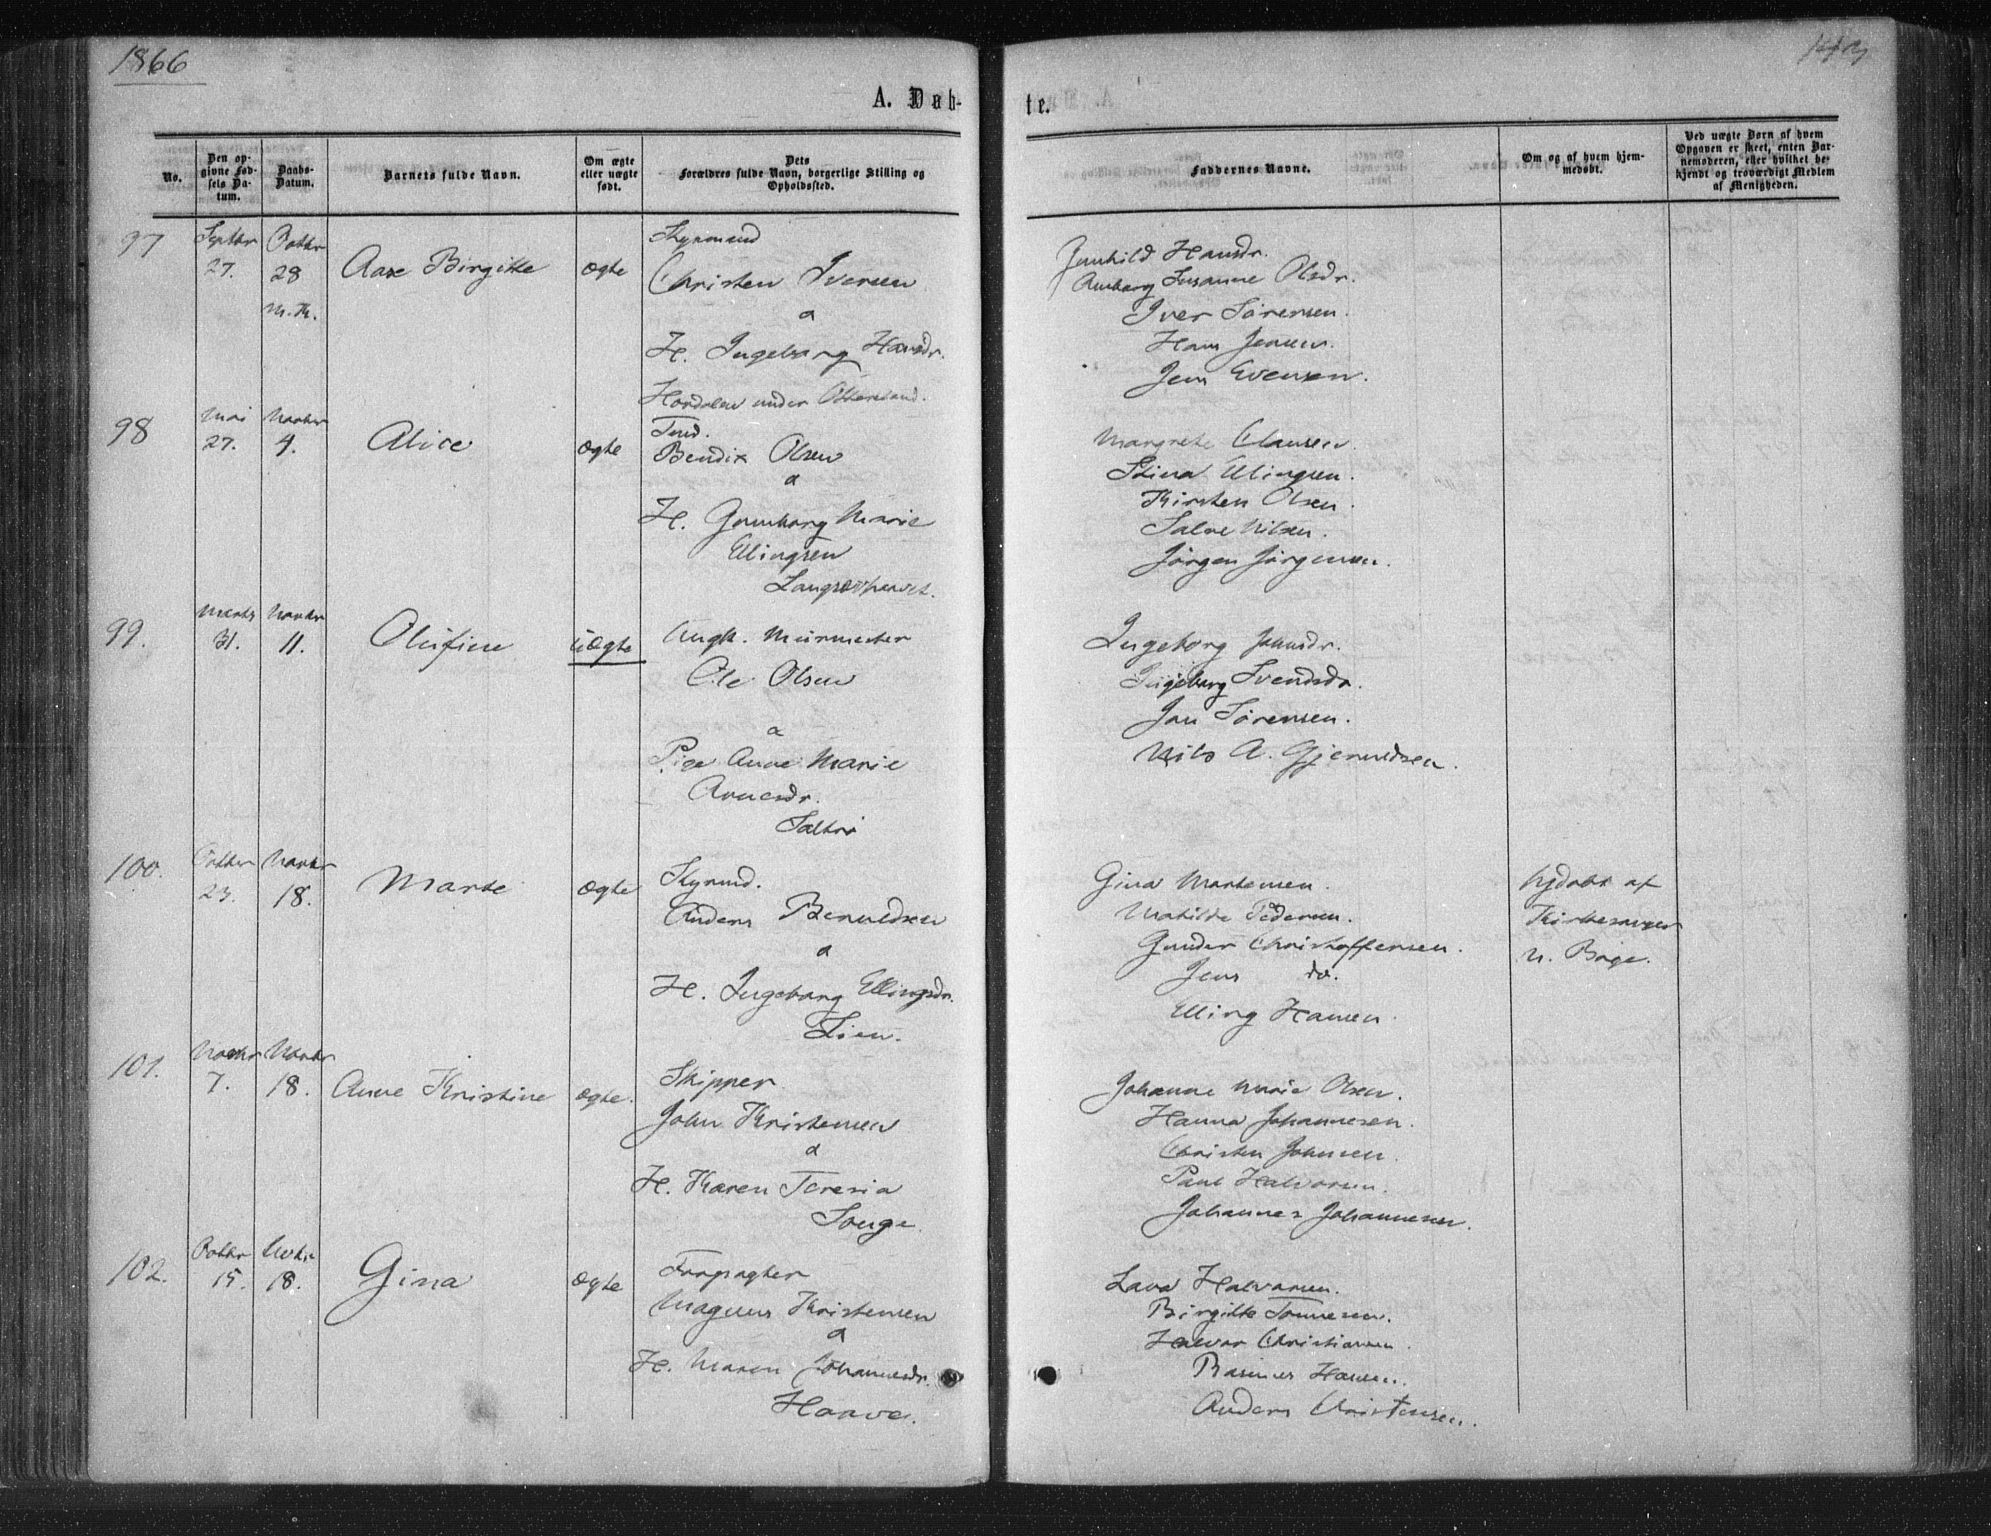 1866
A. Døb-
te.
No.
Den op-
givne Fød-
sels Da-
tum.
Daabs-
Datum.
Barnets fulde Navn.
Om ægte
eller uægte
født.
Dets
Forældres fulde Navn, borgerlige Stilling og
Opholdssted.
Faddernes Navne.
Om og af hvem hjem-
medøbt.
Ved uægte Børn af hvem
Opgaven er skeet, enten Bar-
nemoderen, eller hvilket be-
kjendt og troværdigt Medlem
af Menigheden.
97
Septbr
27.
Octbr
28
Aase Birgitte
ægte
Christen Iversen
a
H. Ingeborg Hansdr.
under
Gunhild Hansdr.
Susanne Olsdr.
Iver Sørensen.
Hans Jensen.
Jens Evensen.
98
Mai
27.
Novbr
4.
Alice
ægte
Bendix Olsen
a
H. Gunborg Marie
Ellingsen
Margrete Clausen.
Stina Ellingsen.
Kirsten Olsen.
Salve Nilsen.
Jørgen Jørgensen.
99.
Marts
31.
Novbr
11.
Olufine
uægte
Ungk. Murmester
Ole Olsen
a
Pige Anne Marie
Arnesdr.
Ingeborg Johnsdr.
Ingeborg Svendsdr.
Jan Sørensen.
Nils A. Gjeruldsen.
100.
Octbr
23.
Novbr
18.
Marte
ægte
Anders Beruldsen
a
H. Ingeborg Ellingsdr.
Lien.
Gina Martensen.
Matilde Pedersen.
Gunder Christoffersen.
Jens do.
Elling Hansen.
hjdøbt af
Kirkesanger
N. Bøge.
101.
Novbr
7.
Novbr
18.
Anne Kristine
ægte.
Skipper
John Kristensen
a
H. Karen Teresia
Songe.
Johanne Marie Olsen.
Hanna Johannesen.
Christen Johnsen.
Paul Halvorsen.
Johannes Johannesen.
102.
Octbr
15.
Novbr
18.
Gina
ægte
Forpagter
Magnus Kristensen
a
H. Maren Johannesdr.
Haave.
Lava Halvorsen.
Birgitte Tønnesen.
Halvor Christiansen.
Rasmus Hansen.
Anders Christensen.